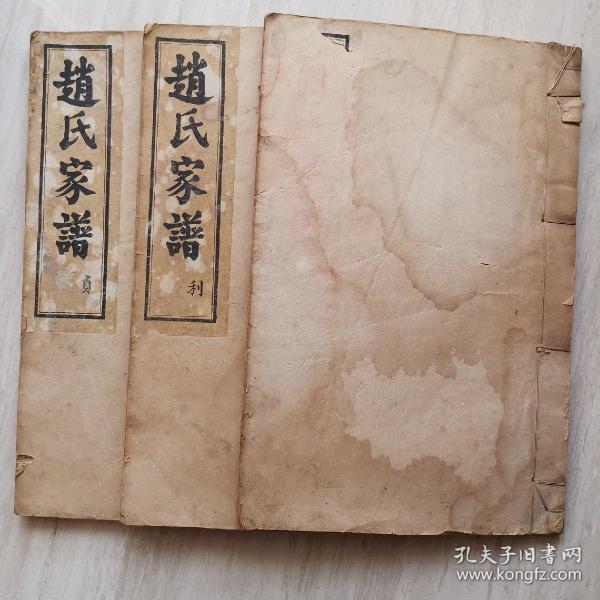 趙氏家譜
貞
趙氏家譜
利
孔夫子旧书网
www.kongfz.com